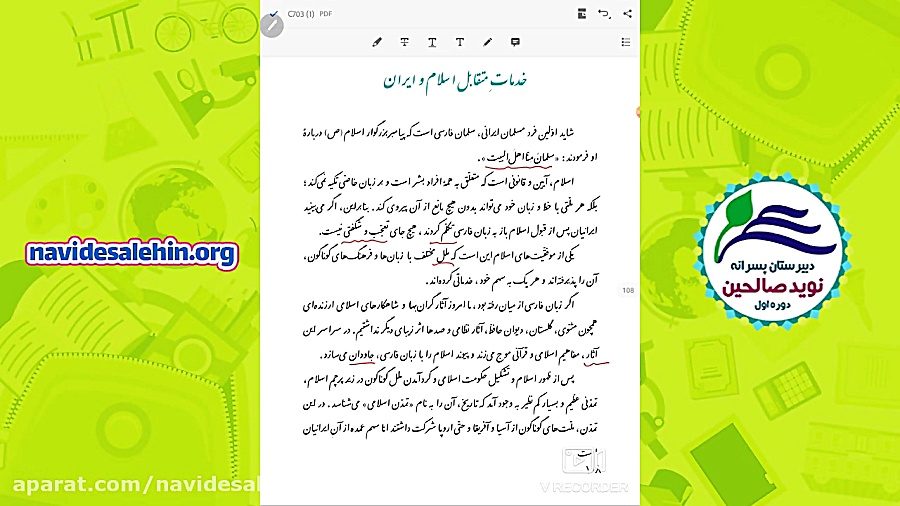 C703 (1) PDF
خدماتِ متقابل اسلام و ایران
شاید اوّلین فرد مسلمان ایرانی، سلمان فارسی است که پیامبر بزرگوار اسلام (ص) دربارهٔ
او فرمودند: «سلمانُ منّا اهل البیت».
اسلام، آیین و قانونی است که متعلّق به همهٔ افراد بشر است و بر زبان خاصّی تکیه نمی‌کند؛
بلکه هر ملّتی با خط و زبان خود می‌تواند بدون هیچ مانع از آن پیروی کند. بنابراین، اگر می‌بینید
ایرانیان پس از قبول اسلام باز به زبان فارسی تکلّم کردند، هیچ جای تعجّب و شگفتی نیست.
یکی از موفّقیّت‌های اسلام این است که ملل مختلف با زبان‌ها و فرهنگ‌های گوناگون،
آن را پذیرفته‌اند و هر یک به سهم خود، خدماتی کرده‌اند.
اگر زبان فارسی از میان رفته بود، ما امروز آثار گران‌بها و شاهکارهای اسلامی ارزنده‌ای
همچون مثنوی، گلستان، دیوان حافظ، آثار نظامی و صدها اثر زیبای دیگر نداشتیم. در سراسر این
آثار، مفاهیم اسلامی و قرآنی موج می‌زند و پیوند اسلام را با زبان فارسی، جاودان می‌سازد.
پس از ظهور اسلام و تشکیل حکومت اسلامی و گردآمدن ملل گوناگون در زیر پرچم اسلام،
تمدّنی عظیم و بسیار کم‌نظیر به وجود آمد که تاریخ، آن را به نام «تمدّن اسلامی» می‌شناسد. در این
تمدّن، ملّت‌های گوناگون از آسیا و آفریقا و حتّی اروپا شرکت داشتند امّا سهم عمده از آن ایرانیان
است
108
V RECORDER
navidesalehin.org
دبیرستان پسرانه
نوید صالحین
دوره اول
aparat.com/navidesal